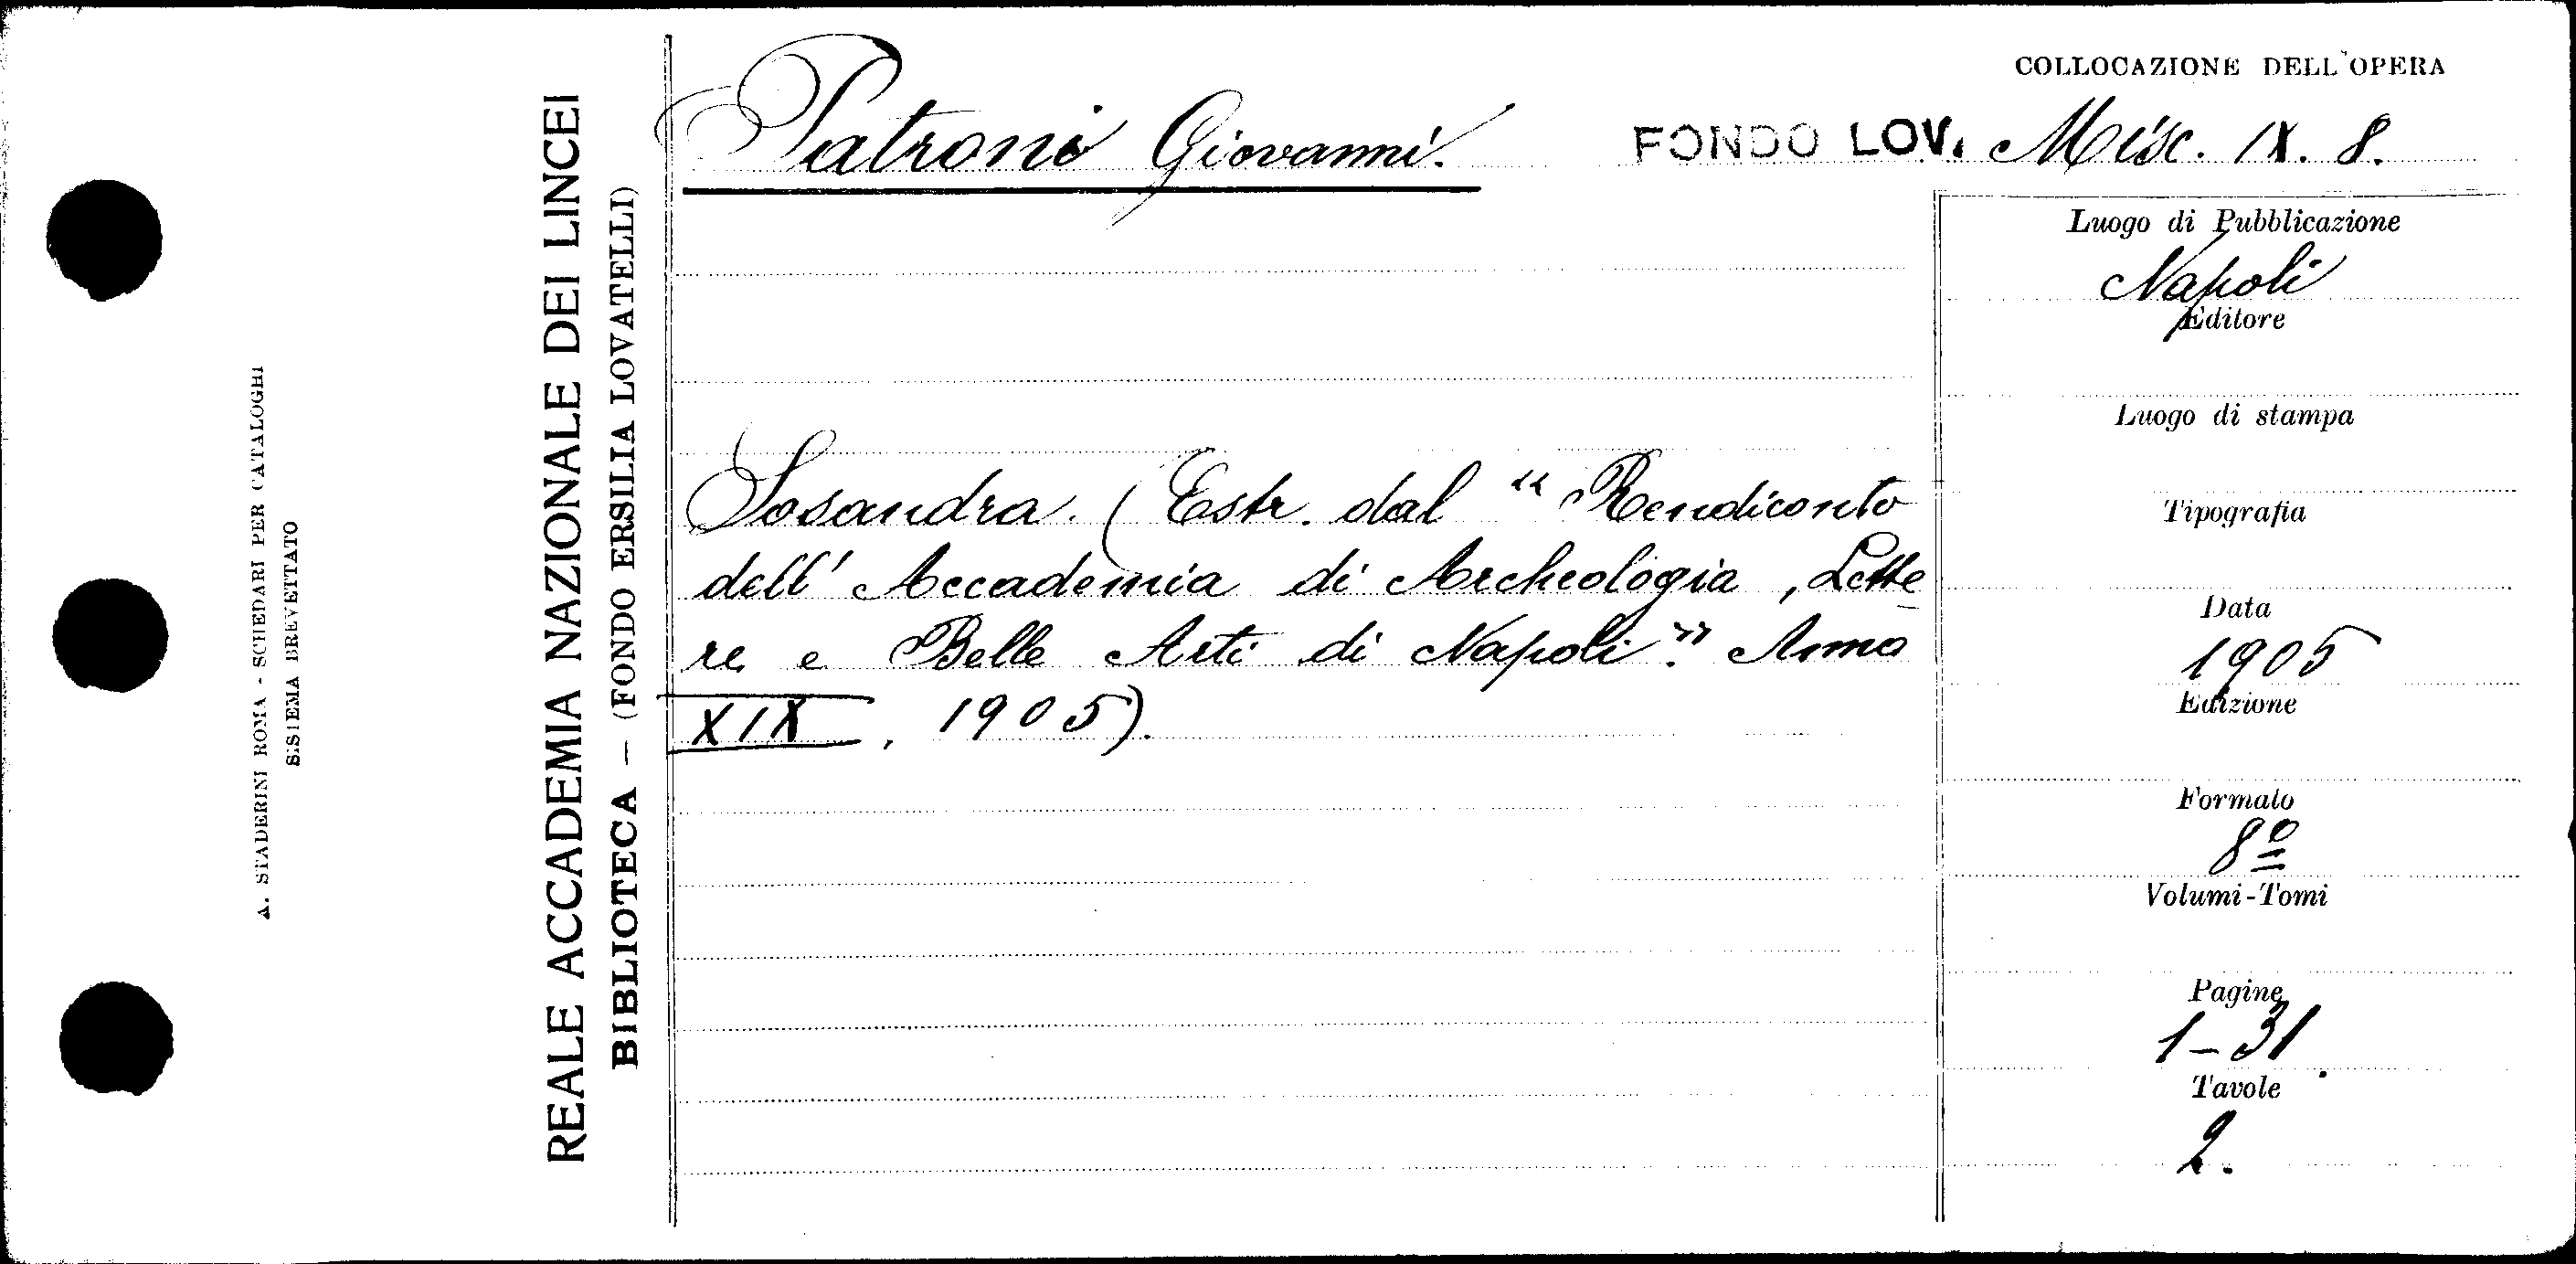 A. STADERINI ROMA - SCHEDARI PER CATALOGHI
SISTEMA BREVETTATO
REALE ACCADEMIA NAZIONALE DEI LINCEI
BIBLIOTECA — (FONDO ERSILIA LOVATELLI)
COLLOCAZIONE DELL'OPERA
Patroni Giovanni. FONDO LOV. Misc. IX. 8.
Sosandra. (Estr. dal "Rendiconto
dell' Accademia di Archeologia, Lette
re e Belle Arti di Napoli". Anno
XIX, 1905).
Luogo di Pubblicazione
Napoli
Editore
Luogo di stampa
Tipografia
Data
1905
Edizione
Formato
8º
Volumi-Tomi
Pagine
1-31
Tavole
2.